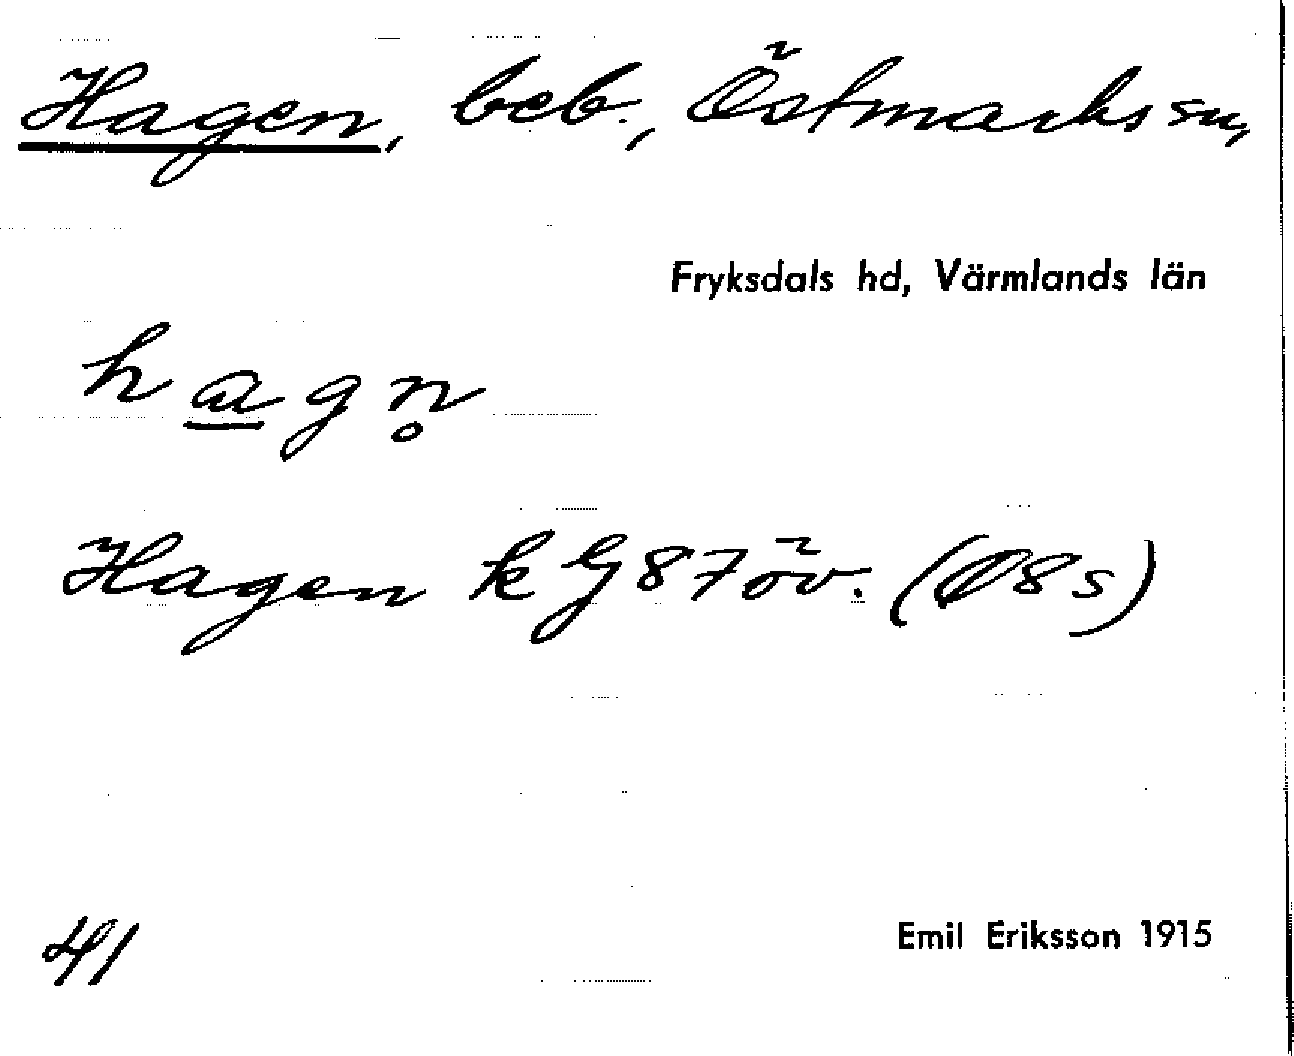 Hagen, beb., Östmarks sn,
Fryksdals hd, Värmlands län
h a g n̥
Hagen k G 87 öv. (Ø8s)
41
Emil Eriksson 1915